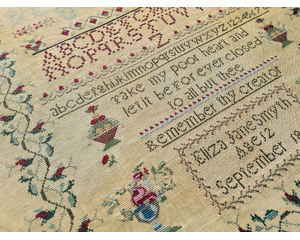 ABCDEFGHIJKLM
NOPQRSTUVWXY
Z
abcdefghijklmnopqrstuvwxyz1234567
Take my poor heart and
let it be for ever closed
to all but thee
Remember thy creator
Eliza Jane Smyth
Age 12
September